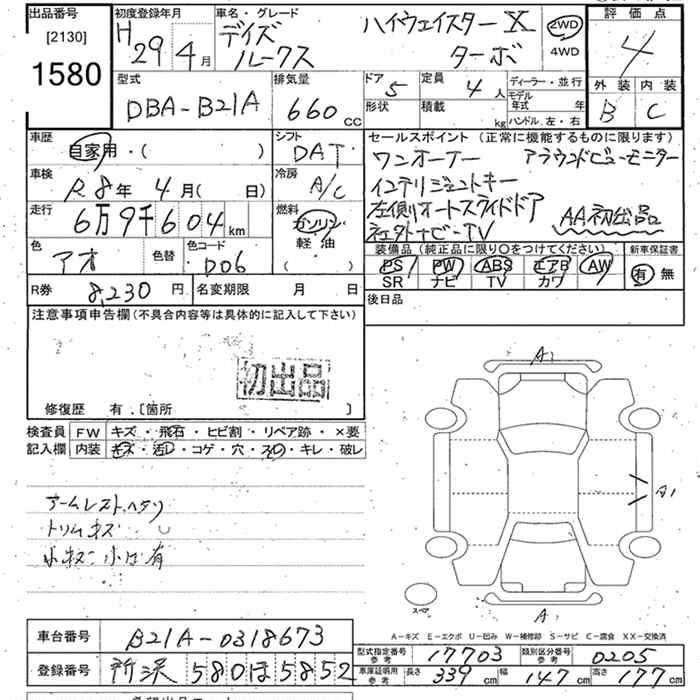 出品番号 [2130] 1580
初度登録年月 H 29 4 月
車名・グレード デイズ ルークス ハイウェイスター X ターボ
2WD 4WD
評価点 4
外装 B 内装 C
型式 DBA-B21A
排気量 660 CC
ドア 5 形状
定員 4 人 積載 kg
ディーラー・並行
モデル年式 年
ハンドル 左・右
車歴 自家用・( )
シフト DAT
車検 R 8 年 4 月( 日)
冷房 A/C
走行 6万9千604 km
燃料 ガソリン 軽油 ( )
色 アオ 色替 色コード D06
R券 8,230 円 名変期限 月 日
セールスポイント (正常に機能するものに限ります)
ワンオーナー アラウンドビューモニター
インテリジェントキー
左側オートスライドドア
社外ナビ-TV AA初出品
装備品(純正品に限り○をつけてください)
PS PW ABS エアB AW
SR ナビ TV カワ
新車保証書 有 無
後日品
注意事項申告欄(不具合内容等は具体的に記入して下さい)
初出品
修復歴 有.[箇所 ]
検査員記入欄
FW キズ・飛石・ヒビ割・リペア跡・×要
内装 キズ・汚レ・コゲ・穴・スレ・キレ・破レ
アームレストヘタリ
トリムキズ
小キズ 小凹有
A1
A1
A
スペア
A-キズ E-エクボ U-凹み W-補修跡 S-サビ C-腐食 XX-交換済
車台番号 B21A-0318673
登録番号 所沢 580 ほ 5852
型式指定番号 参考 17703 類別区分番号 参考 0205
車庫証明用 参考 長さ 339 cm 幅 147 cm 高さ 177 cm